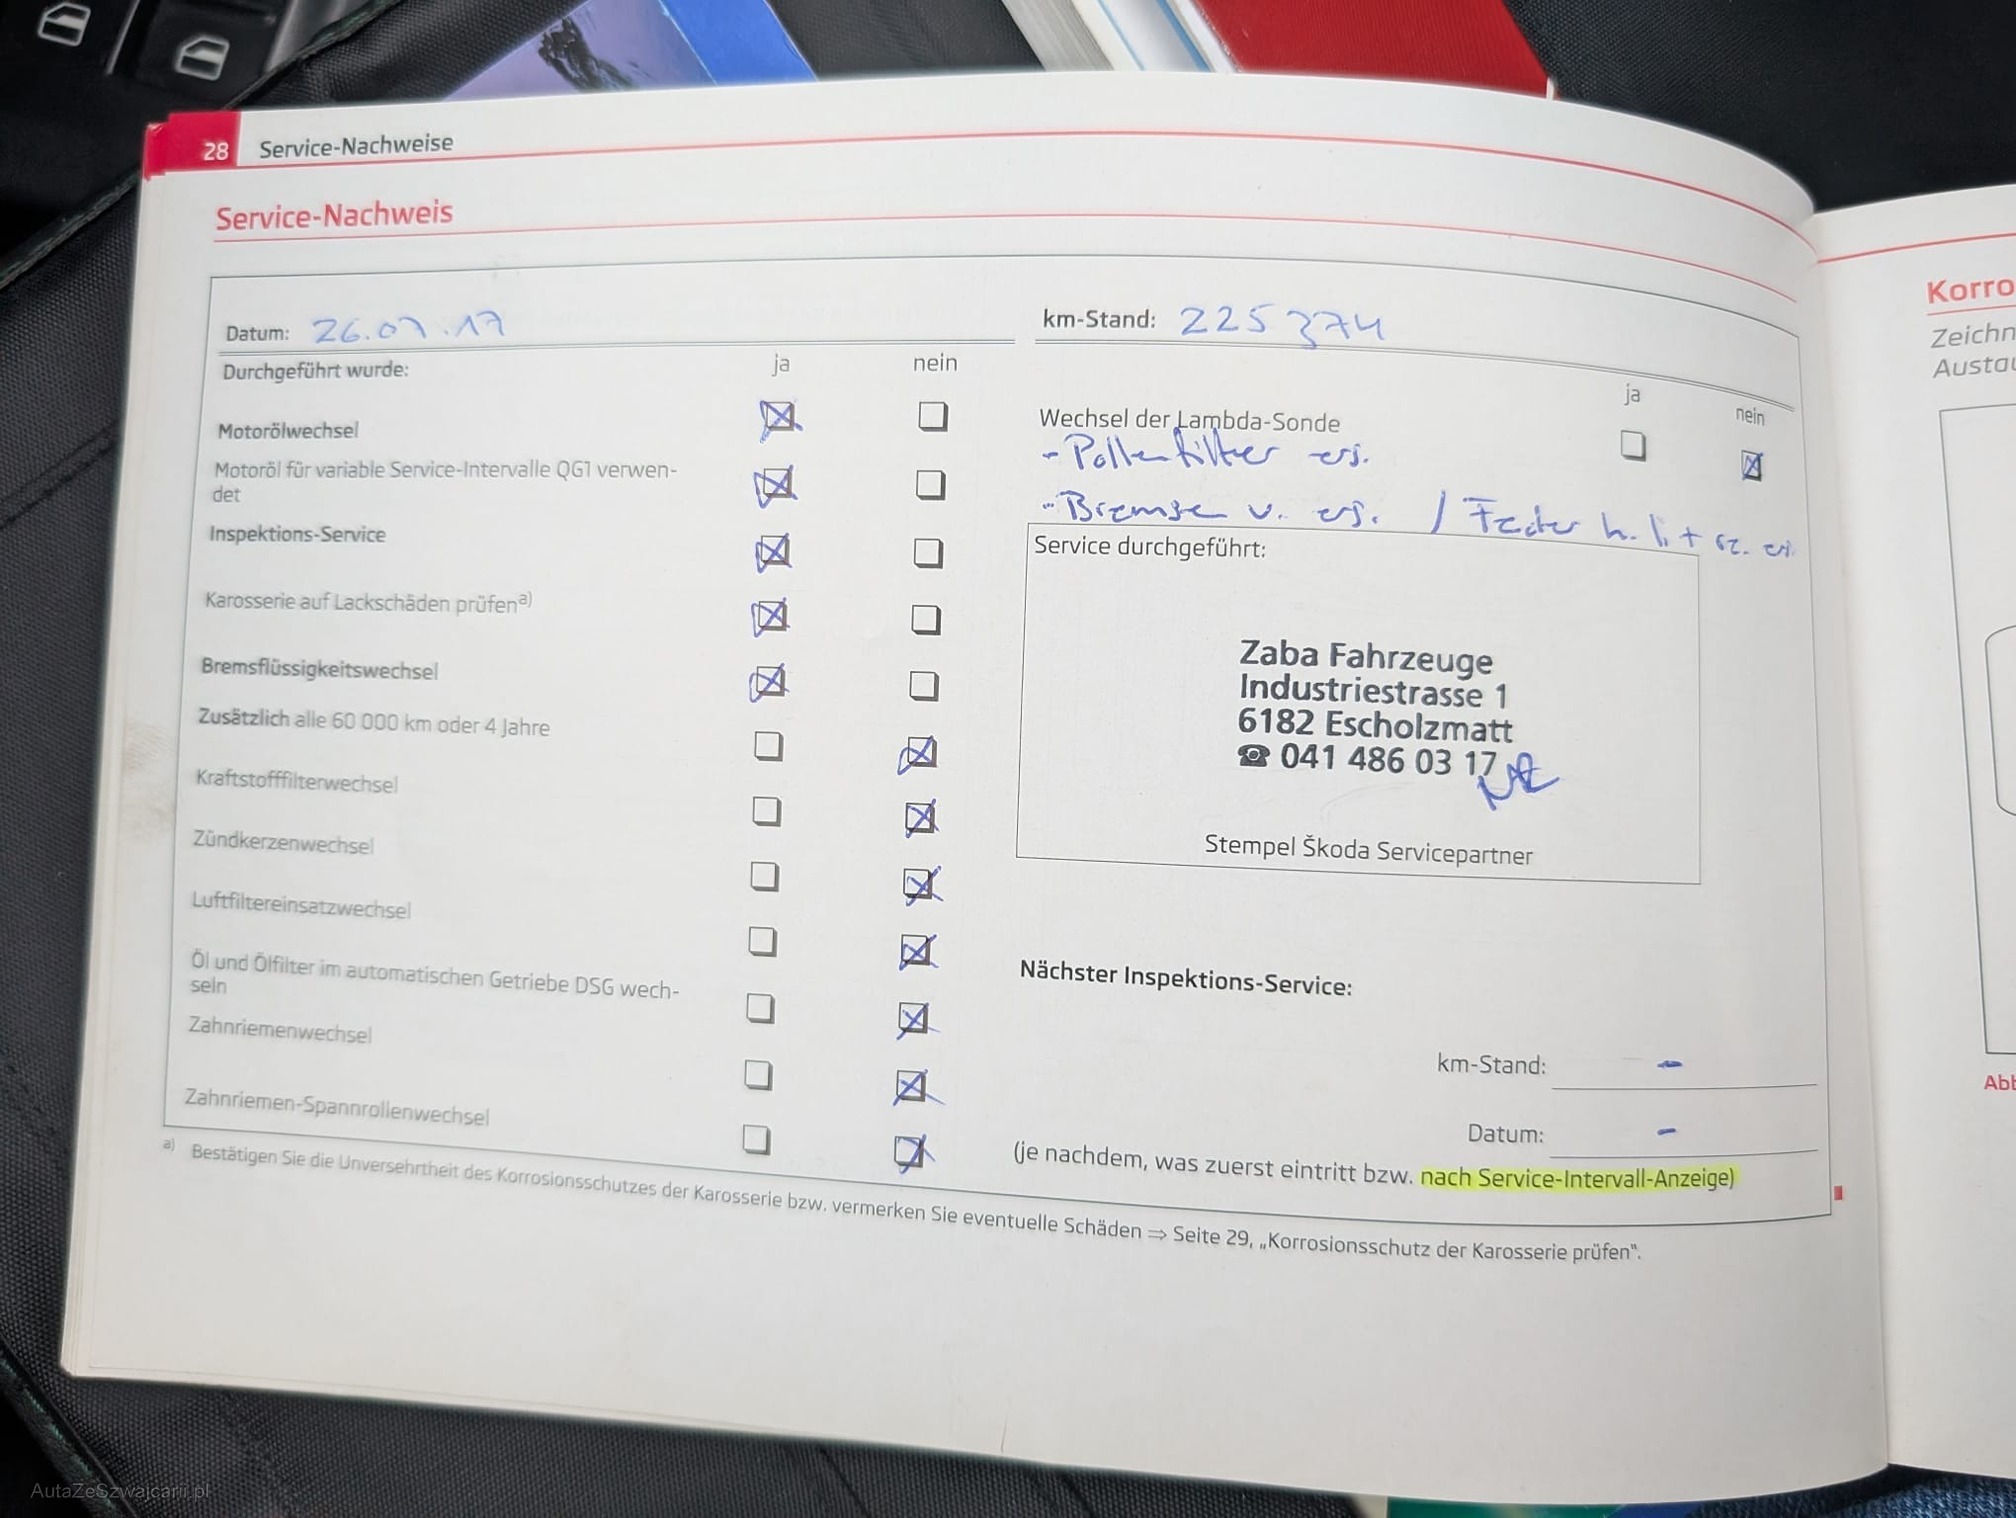 28 Service-Nachweise
Service-Nachweis
Datum: 26.07.17
km-Stand: 225 374
Durchgeführt wurde: ja nein
Motorölwechsel
Motoröl für variable Service-Intervalle QG1 verwen-
det
Inspektions-Service
Karosserie auf Lackschäden prüfena)
Bremsflüssigkeitswechsel
Zusätzlich alle 60 000 km oder 4 Jahre
Kraftstofffilterwechsel
Zündkerzenwechsel
Luftfiltereinsatzwechsel
Öl und Ölfilter im automatischen Getriebe DSG wech-
seln
Zahnriemenwechsel
Zahnriemen-Spannrollenwechsel
ja nein
Wechsel der Lambda-Sonde
- Pollenfilter ers.
- Bremse v. ers. / Feder h. li +
Service durchgeführt:
Zaba Fahrzeuge
Industriestrasse 1
6182 Escholzmatt
☎ 041 486 03 17
Stempel Škoda Servicepartner
Nächster Inspektions-Service:
km-Stand: -
Datum: -
(je nachdem, was zuerst eintritt bzw. nach Service-Intervall-Anzeige)
a) Bestätigen Sie die Unversehrtheit des Korrosionsschutzes der Karosserie bzw. vermerken Sie eventuelle Schäden ⇒ Seite 29, „Korrosionsschutz der Karosserie prüfen".
Korro
Zeichn
Austau
Abb
AutaZeSzwajcarii.pl